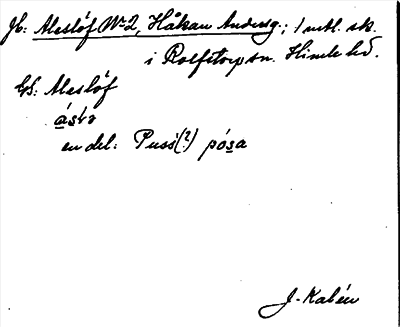 Jb: Aleslöf No 2, Håkan Anderg.; 1 mtl. sk.
i Rolfstorp sn. Himle hd.
GS: Aleslöf
ásta
en del: Pusi(?) pósa
J. Kalén